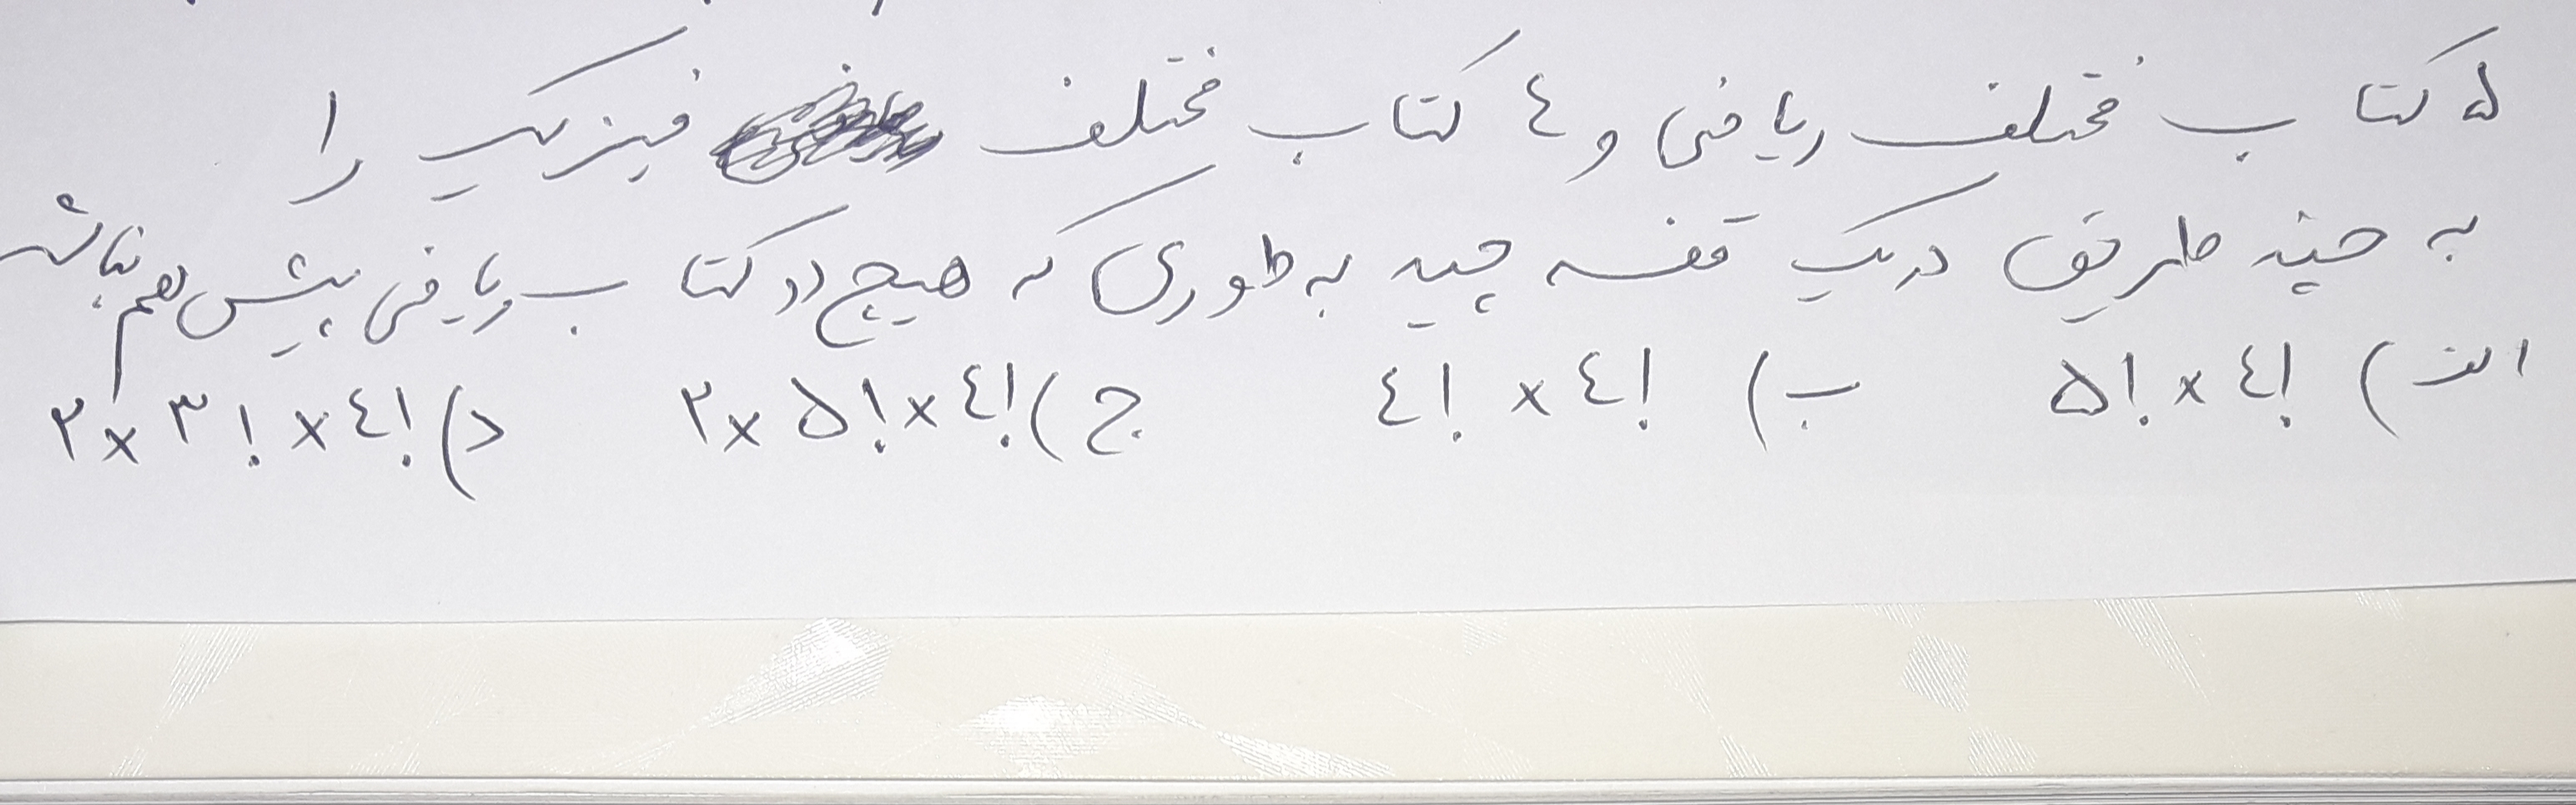 ۵ کتاب مختلف ریاضی و ٤ کتاب مختلف فیزیک را
به چند طریق در یک قفسه چید به طوری که هیچ دو کتاب ریاضی پیش هم نباشد
الف) ۵! × ٤! ب) ٤! × ٤! ج) ۲ × ۵! × ٤! د) ۲ × ۳! × ٤!